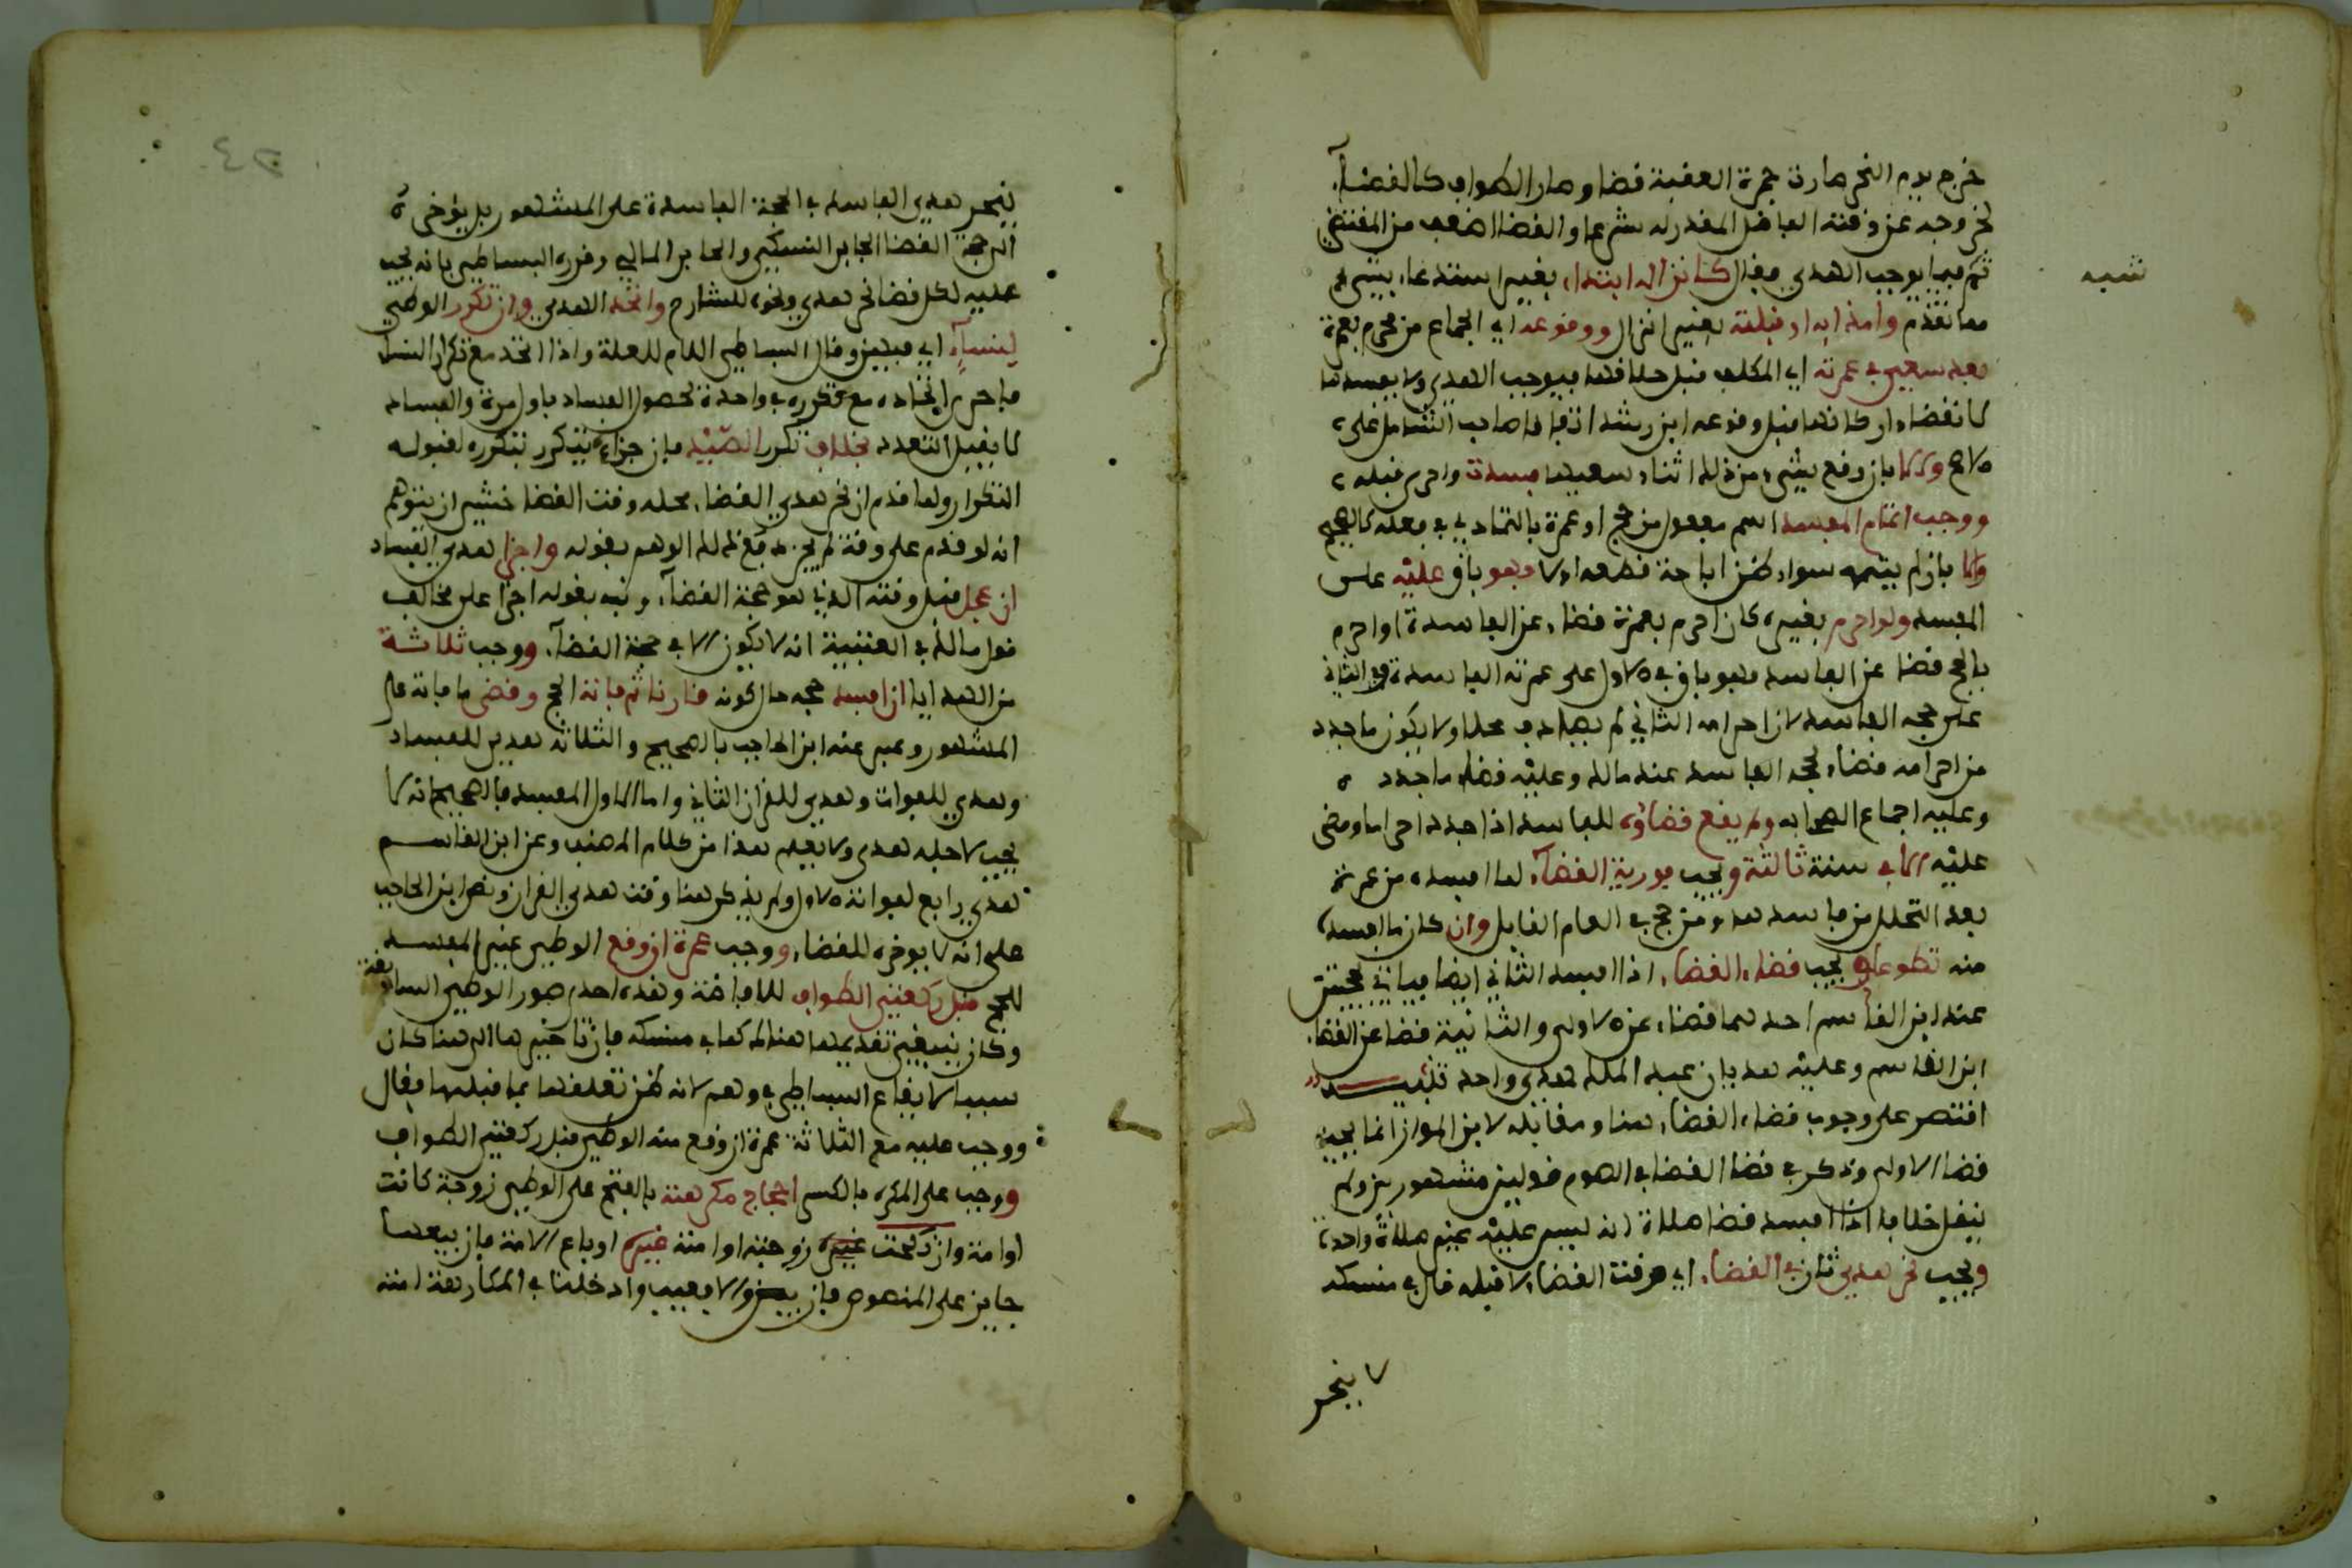 خرج يوم النحر صارت جمرة العقبة قضا وصار الطواف كالقضاء
لخروجه عن وقته الفاضل المقدر له شرعا والقضا اضعف من المقتضي
ثم فيما يوجب الهدي فقال كانزال ابتداء بغير استدعاء بشيء
مما تقدم وامذايه او قبلته بغير انزال ووقوعه اي الجماع من محرم بعمرة
بعد سعيي في عمرته اي المكلف قبل حلاقها فيوجب الهدي ولا يفسدها
لانقضاء اركانها قبل وقوعه ابن رشد اتفاقا صاحب الشامل على
الاصح والا بان وقع شيء من ذلك اثناء سعيها فسدت واحرى قبله
ووجب اتمام المفسد اسم مفعول من حج او عمرة بالتمادي في فعله كالصحيح
والا بان لم يتمه سواء ظن اباحة قطعه او لا فهو باق عليه على
المفسد ولو احرم بغيره كان احرم بعمرة قضاء عن الفاسدة او احرم
بالحج قضا عن الفاسد فهو باق في الاول على عمرته الفاسدة وفي الثاني
على حجه الفاسد لان احرامه الثاني لم يصادف محلا ولا يكون ما جدد
من احرامه قضاء لحجه الفاسد عند مالك وعليه قضاء ما جدد
وعليه اجماع الصحابه ولم يقع قضاؤه للفاسد اذا جدد احراما ومضى
عليه الا في سنة ثالثة ويجب فورية القضاء لما افسده من عمرته
بعد التحلل من فاسد هذا ومن حج في العام القابل وان كان ما افسد
منه تطوعا ويجب قضاء القضاء اذا افسد الثاني ايضا فياتي بحجتين
عند ابن القاسم احدهما قضاء عن الاولى والثانية قضا عن القضاء
ابن القاسم وعليه هديان عبد الملك هدي واحد تنبيه
اقتصر على وجوب قضاء القضاء هنا ومقابله لابن المواز انما يجب
قضا الاولى وذكر في قضا القضا في الصوم قولين مشهورين ولم
ينقل خلافا اذا افسد قضا صلاة انه ليس عليه غير صلاة واحدة
ويجب نحر هدي ثان في القضاء اي وقت القضاء لا قبله قال في منسكه
لا ينحر
شبه
ينحر هدي الفاسد في الحجة الفاسدة على المشهور بل يؤخره
الى حجة القضا الجابر النسكي والجابر المالي وقرره البساطي بانه يجب
عليه لكل قضا نحر هدي ونحوه للشارح واتحد الهدي وان تكرر الوطي
لنساء اي فيهن وقال البساطي اللام للعلة واذا اتحد مع تكرار النسا
فاحرى اتحاده مع تكرره في واحدة لحصول الفساد باول مرة والفساد
لا يقبل التعدد بخلاف تكرر الصيد فان جزاءه يتكرر بتكرره لقبوله
التكرار ولما قدم ان نحر هدي القضاء محله وقت القضا خشي ان يتوهم
انه لو قدم على وقته لم يجز دفع ذلك الوهم بقوله واجزا هدي الفساد
ان عجل قبل وقته الذي هو حجة القضاء ونبه بقوله اجزا على مخالف
قول مالك في العتبية انه لا يكون الا في حجة القضاء ووجب ثلاثة
من الهدايا ان افسد حجه حال كونه قارنا ثم فاته الحج وقضى ما فاته على
المشهور وعبر عنه ابن الحاجب بالصحيح والثلاثة هدي للفساد
وهدي للفوات وهدي للقران الثاني واما الاول المفسد فالصحيح انه لا
يجب لاجله هدي ولا يفهم هذا من كلام المصنف وعن ابن القاسم
هدي رابع لفوانه الاول ولم يذكر هنا وقت هدي القران ونص ابن الحاجب
على انه لا يوخره للقضاء ووجب عمرة ان وقع الوطي غير المفسد
للحج قبل ركعتي الطواف للافاضة وهذه احدى صور الوطي السابقة
وكان ينبغي تقديمها هنالك كما في منسكه فان تاخيرها الى هنا كان
سببا لايقاع البساطي في وهم لانه ظن تعلقها بما قبلها فقال
ووجب عليه مع الثلاثة عمرة ان وقع منه الوطي قبل ركعتي الطواف
ووجب على المكره بالكسر احجاج مكرهته بالفتح على الوطي زوجة كانت
او امة وان نكحت غيره زوجته او امته غيره او باع الامة فان بيعها
جايز على المنصوص فان بين والا فعيب وادخلنا في المكارهة امته